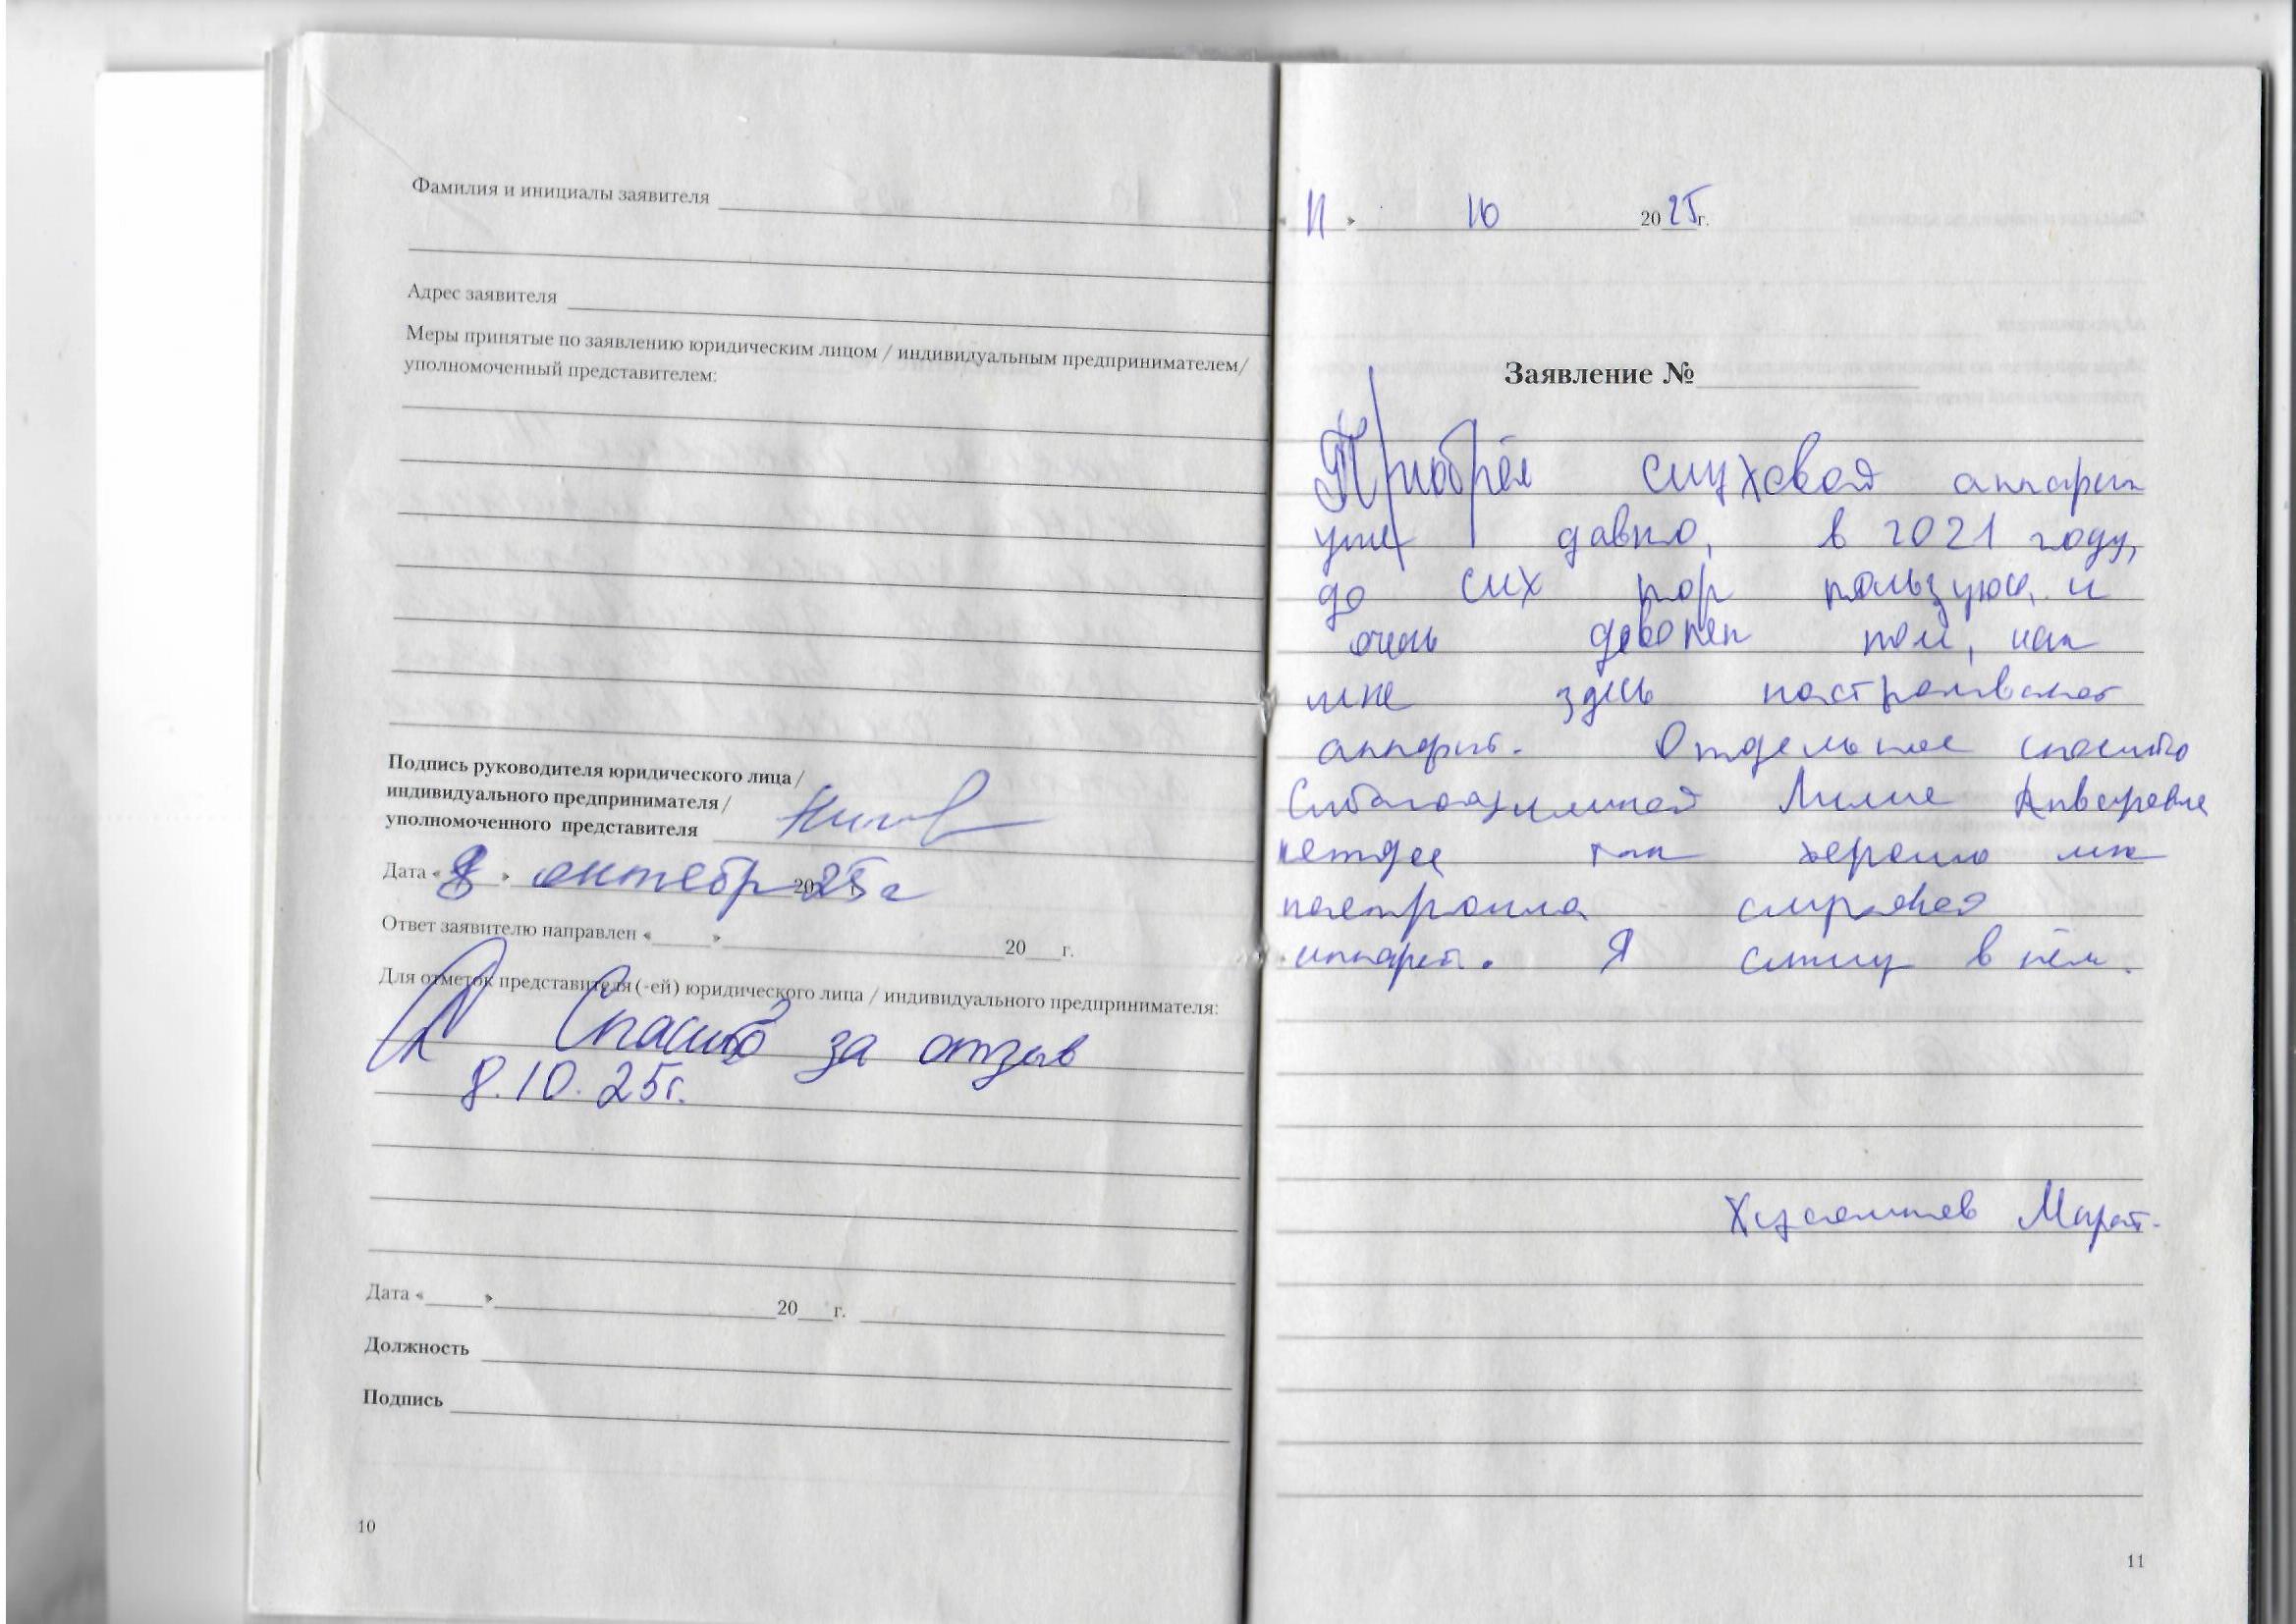 Фамилия и инициалы заявителя
Адрес заявителя
Меры принятые по заявлению юридическим лицом / индивидуальным предпринимателем/
уполномоченный представителем:
Подпись руководителя юридического лица /
индивидуального предпринимателя /
уполномоченного представителя
Дата « 8 » октября 2025 г
Ответ заявителю направлен « » 20 г.
Для отметок представителя (-ей) юридического лица / индивидуального предпринимателя:
Спасибо за отзыв
8.10.25г.
Дата « » 20 г.
Должность
Подпись
10
« 11 » 10 2025 г.
Заявление №
Приобрёл слуховой аппарат
уже давно, в 2021 году,
до сих пор пользуюсь и
очень доволен тем, как
мне здесь настраивают
аппарат. Отдельное спасибо
Лилие Анваровне
так хорошо мне
настроила слуховой
аппарат. Я слышу в нём.
Марат.
11